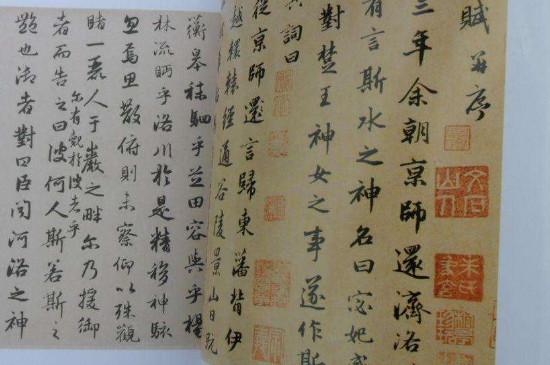 賦并序
三年余朝京師還濟洛
有言斯水之神名曰宓妃感
對楚王神女之事遂作斯
其詞曰
從京師還言歸東藩背伊
越轘轅經通谷陵景山日既
蘅皋秣駟乎芝田容與乎楊
林流眄乎洛川於是精移神駭
忽焉思散俯則未察仰以殊觀
睹一麗人于巖之畔尔乃援御
尔有覿於彼者乎
者而告之曰彼何人斯若斯之
豔也御者對曰臣聞河洛之神